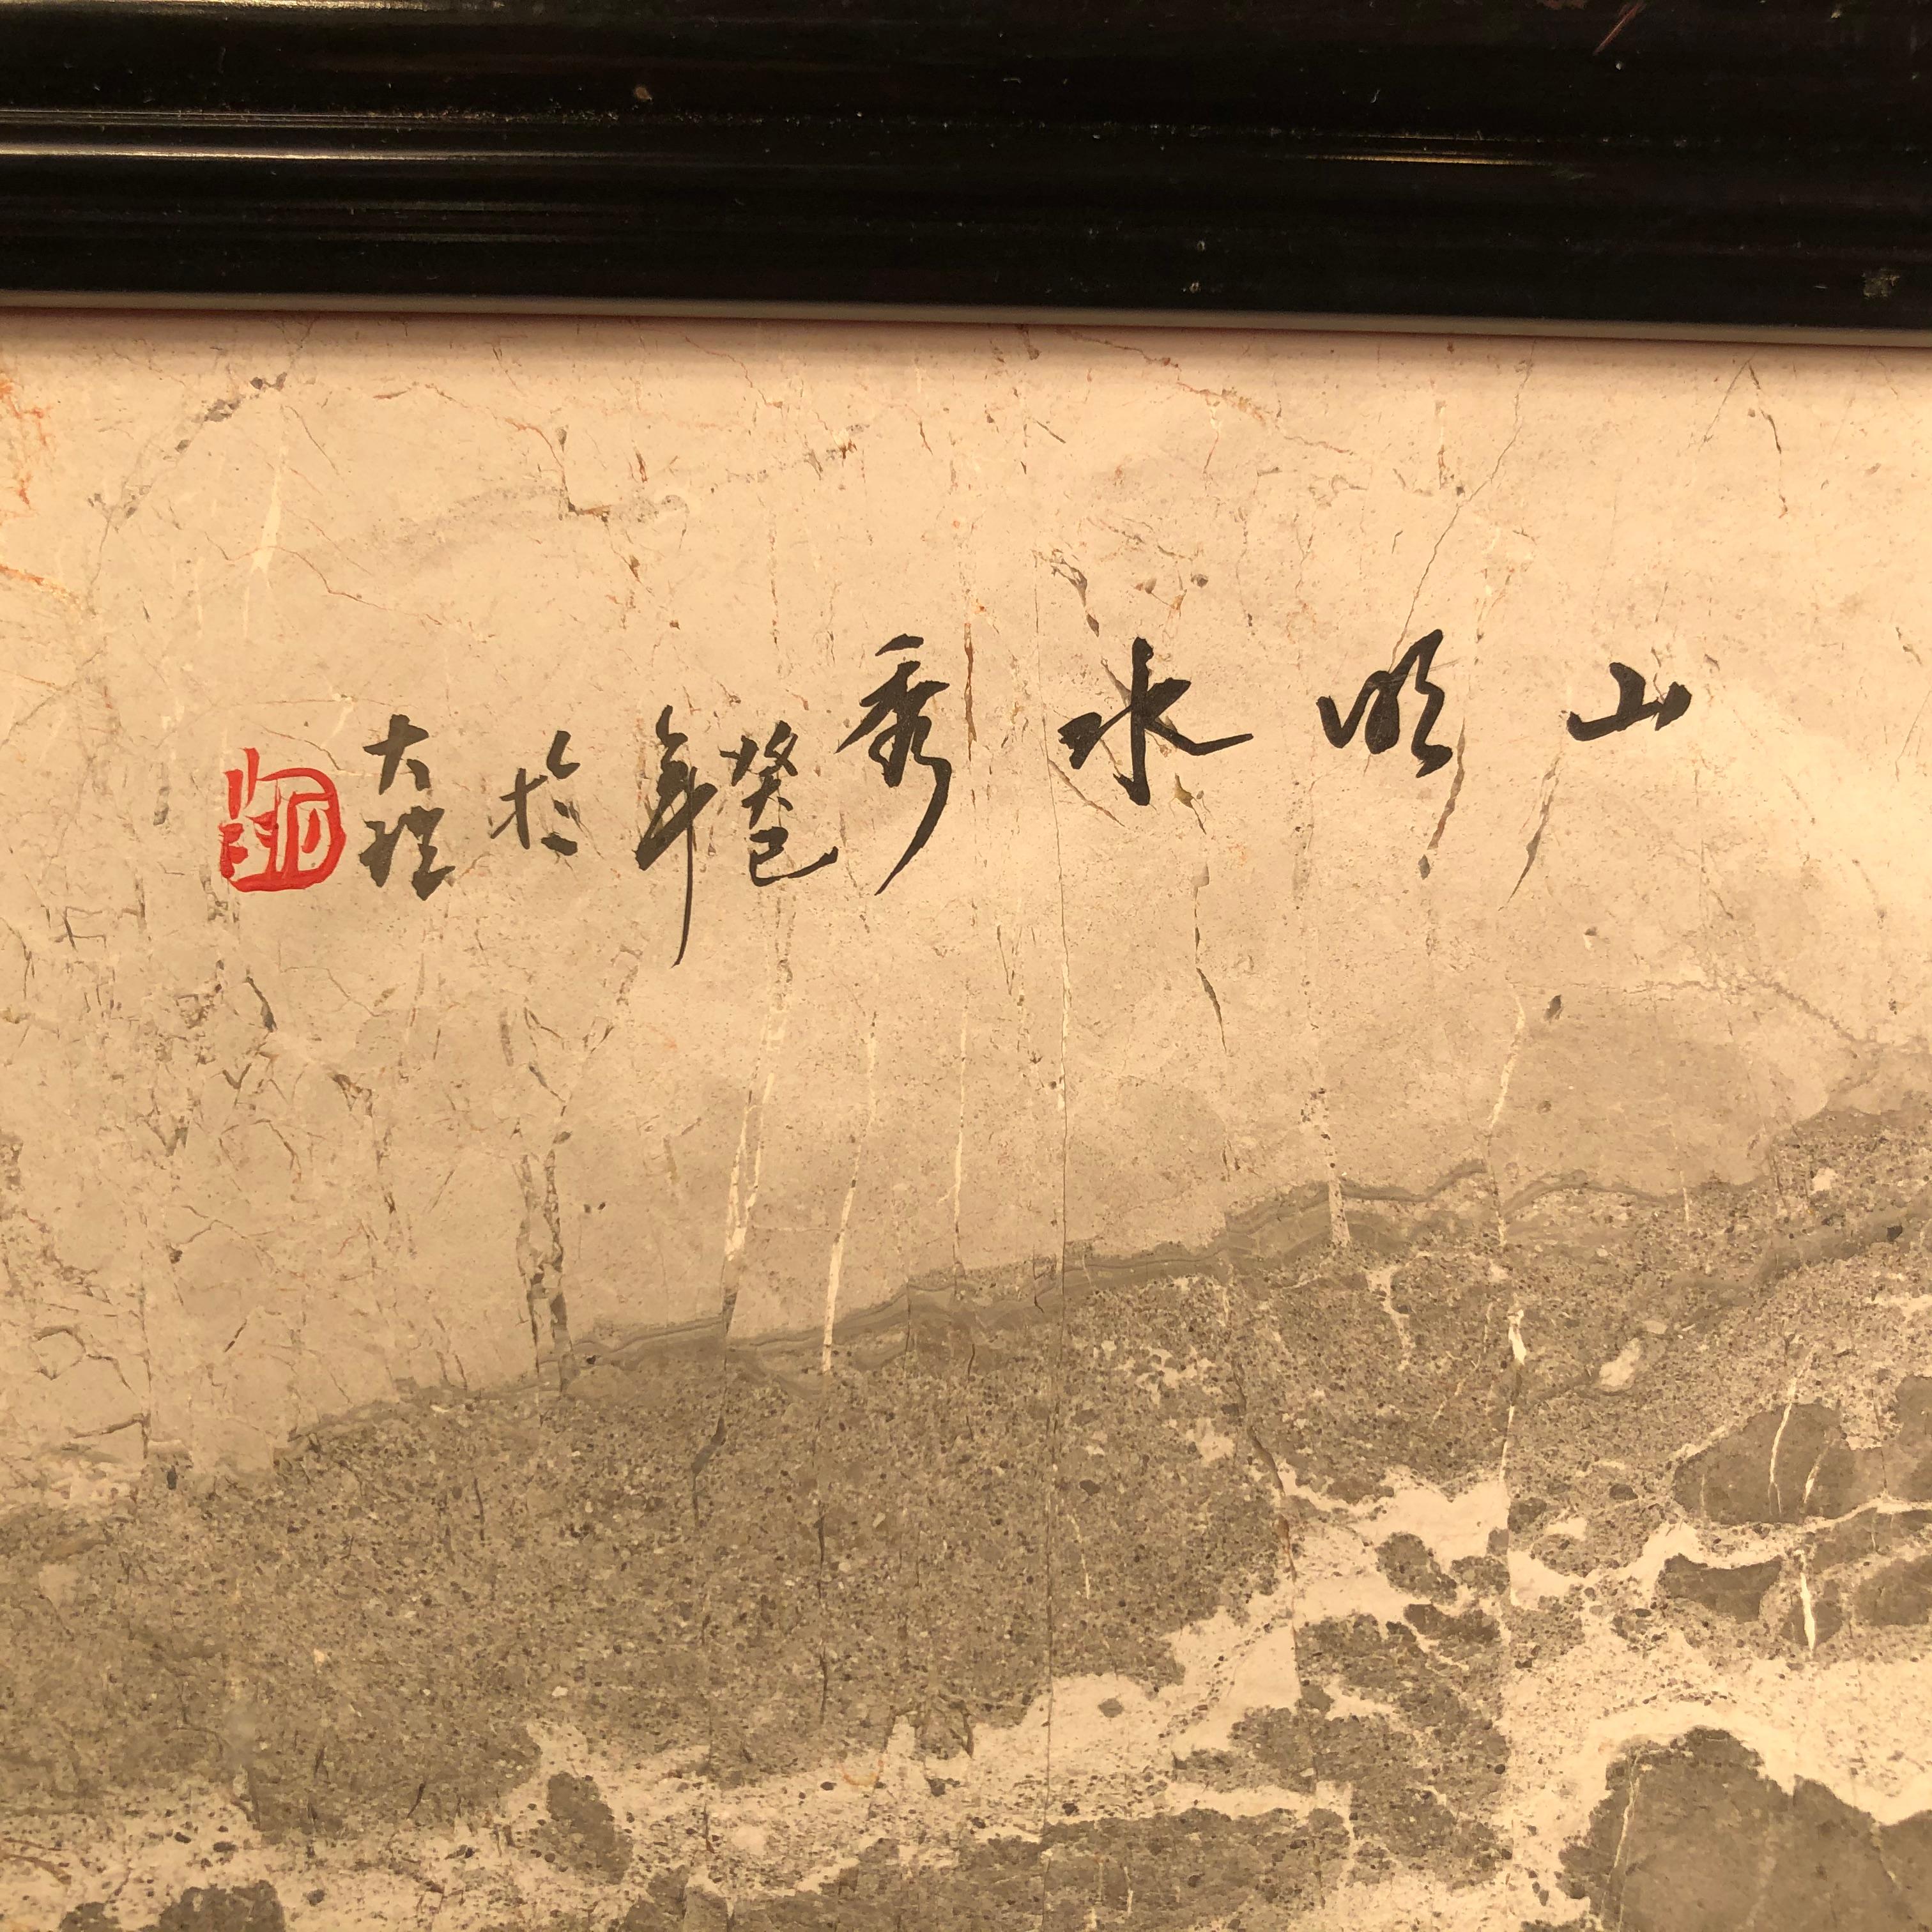 山明水秀
癸巳
年
於
大理